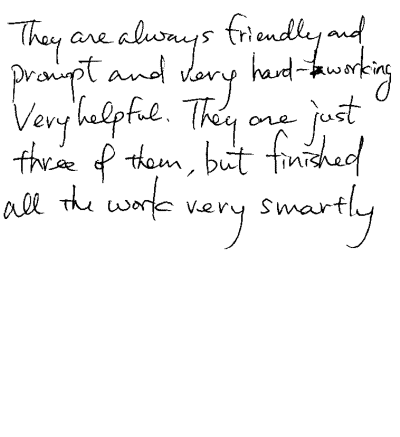 They are always friendly and
prompt and very hard-working
Very helpful. They are just
three of them, but finished
all the work very smartly